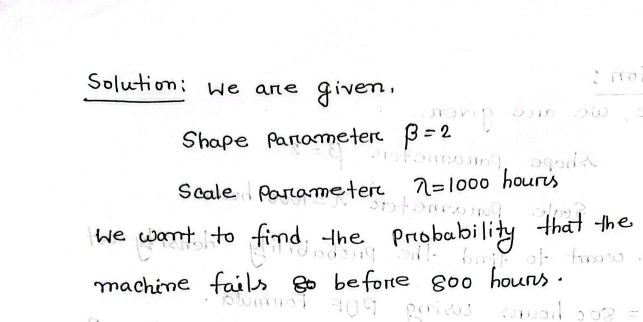 Solution: We are given,
Shape Parameter β = 2
Scale Parameter λ=1000 hours
We want to find the Probability that the
machine fails before 800 hours.